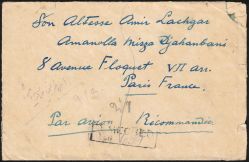 Son Altesse Amir Lachgar
Amanolla Mirza Djahanbani
8 Avenue Floquet VII arr.
Paris France.
Par avion Récommandée